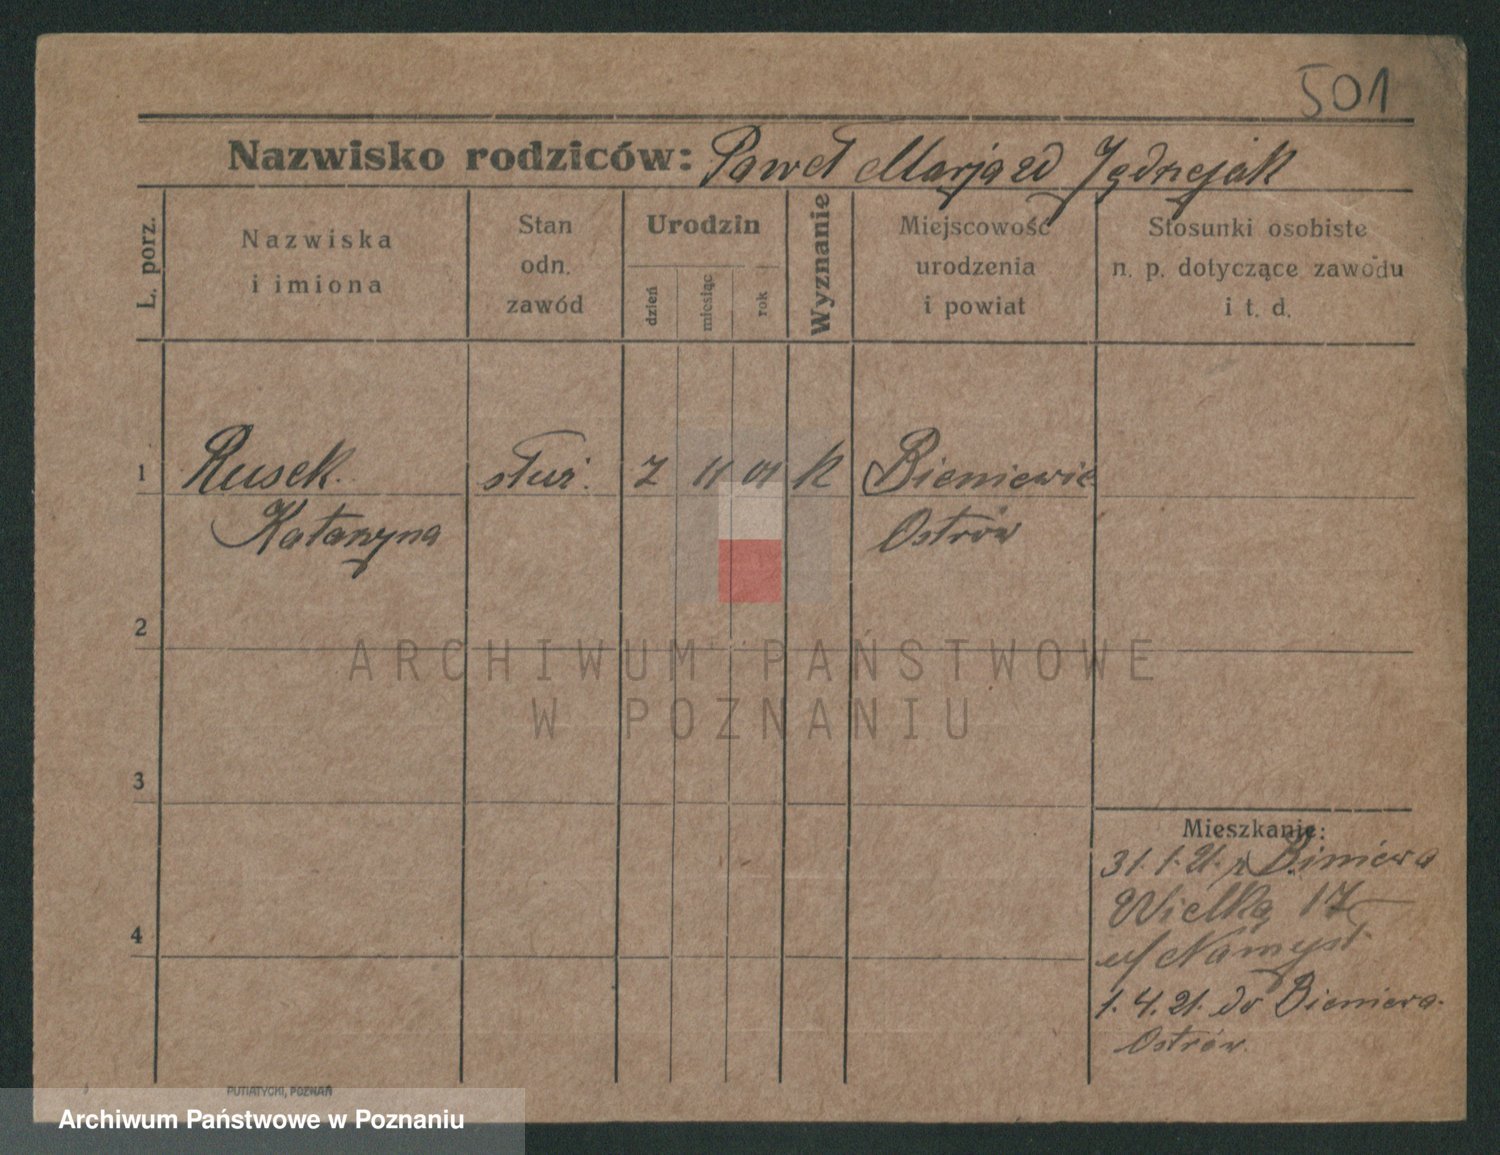 501
Nazwisko rodziców: Paweł Marja zd Jędrzejak
L. porz.
Nazwiska
i imiona
Stan
odn.
zawód
Urodzin
dzień
miesiąc
rok
Wyznanie
Miejscowość
urodzenia
i powiat
Stosunki osobiste
n. p. dotyczące zawodu
i t. d.
1 Rusek służ. 2 11 01 K Bieniewie
Katarzyna Ostrów
2
ARCHIWUM PAŃSTWOWE
W POZNANIU
3
Mieszkanie:
31.1.21. z Biniewa
Wielka 17
u/ Namysł
4
1.4.21. do Bieniewa
Ostrów.
PUTIATYCKI, POZNAŃ
Archiwum Państwowe w Poznaniu